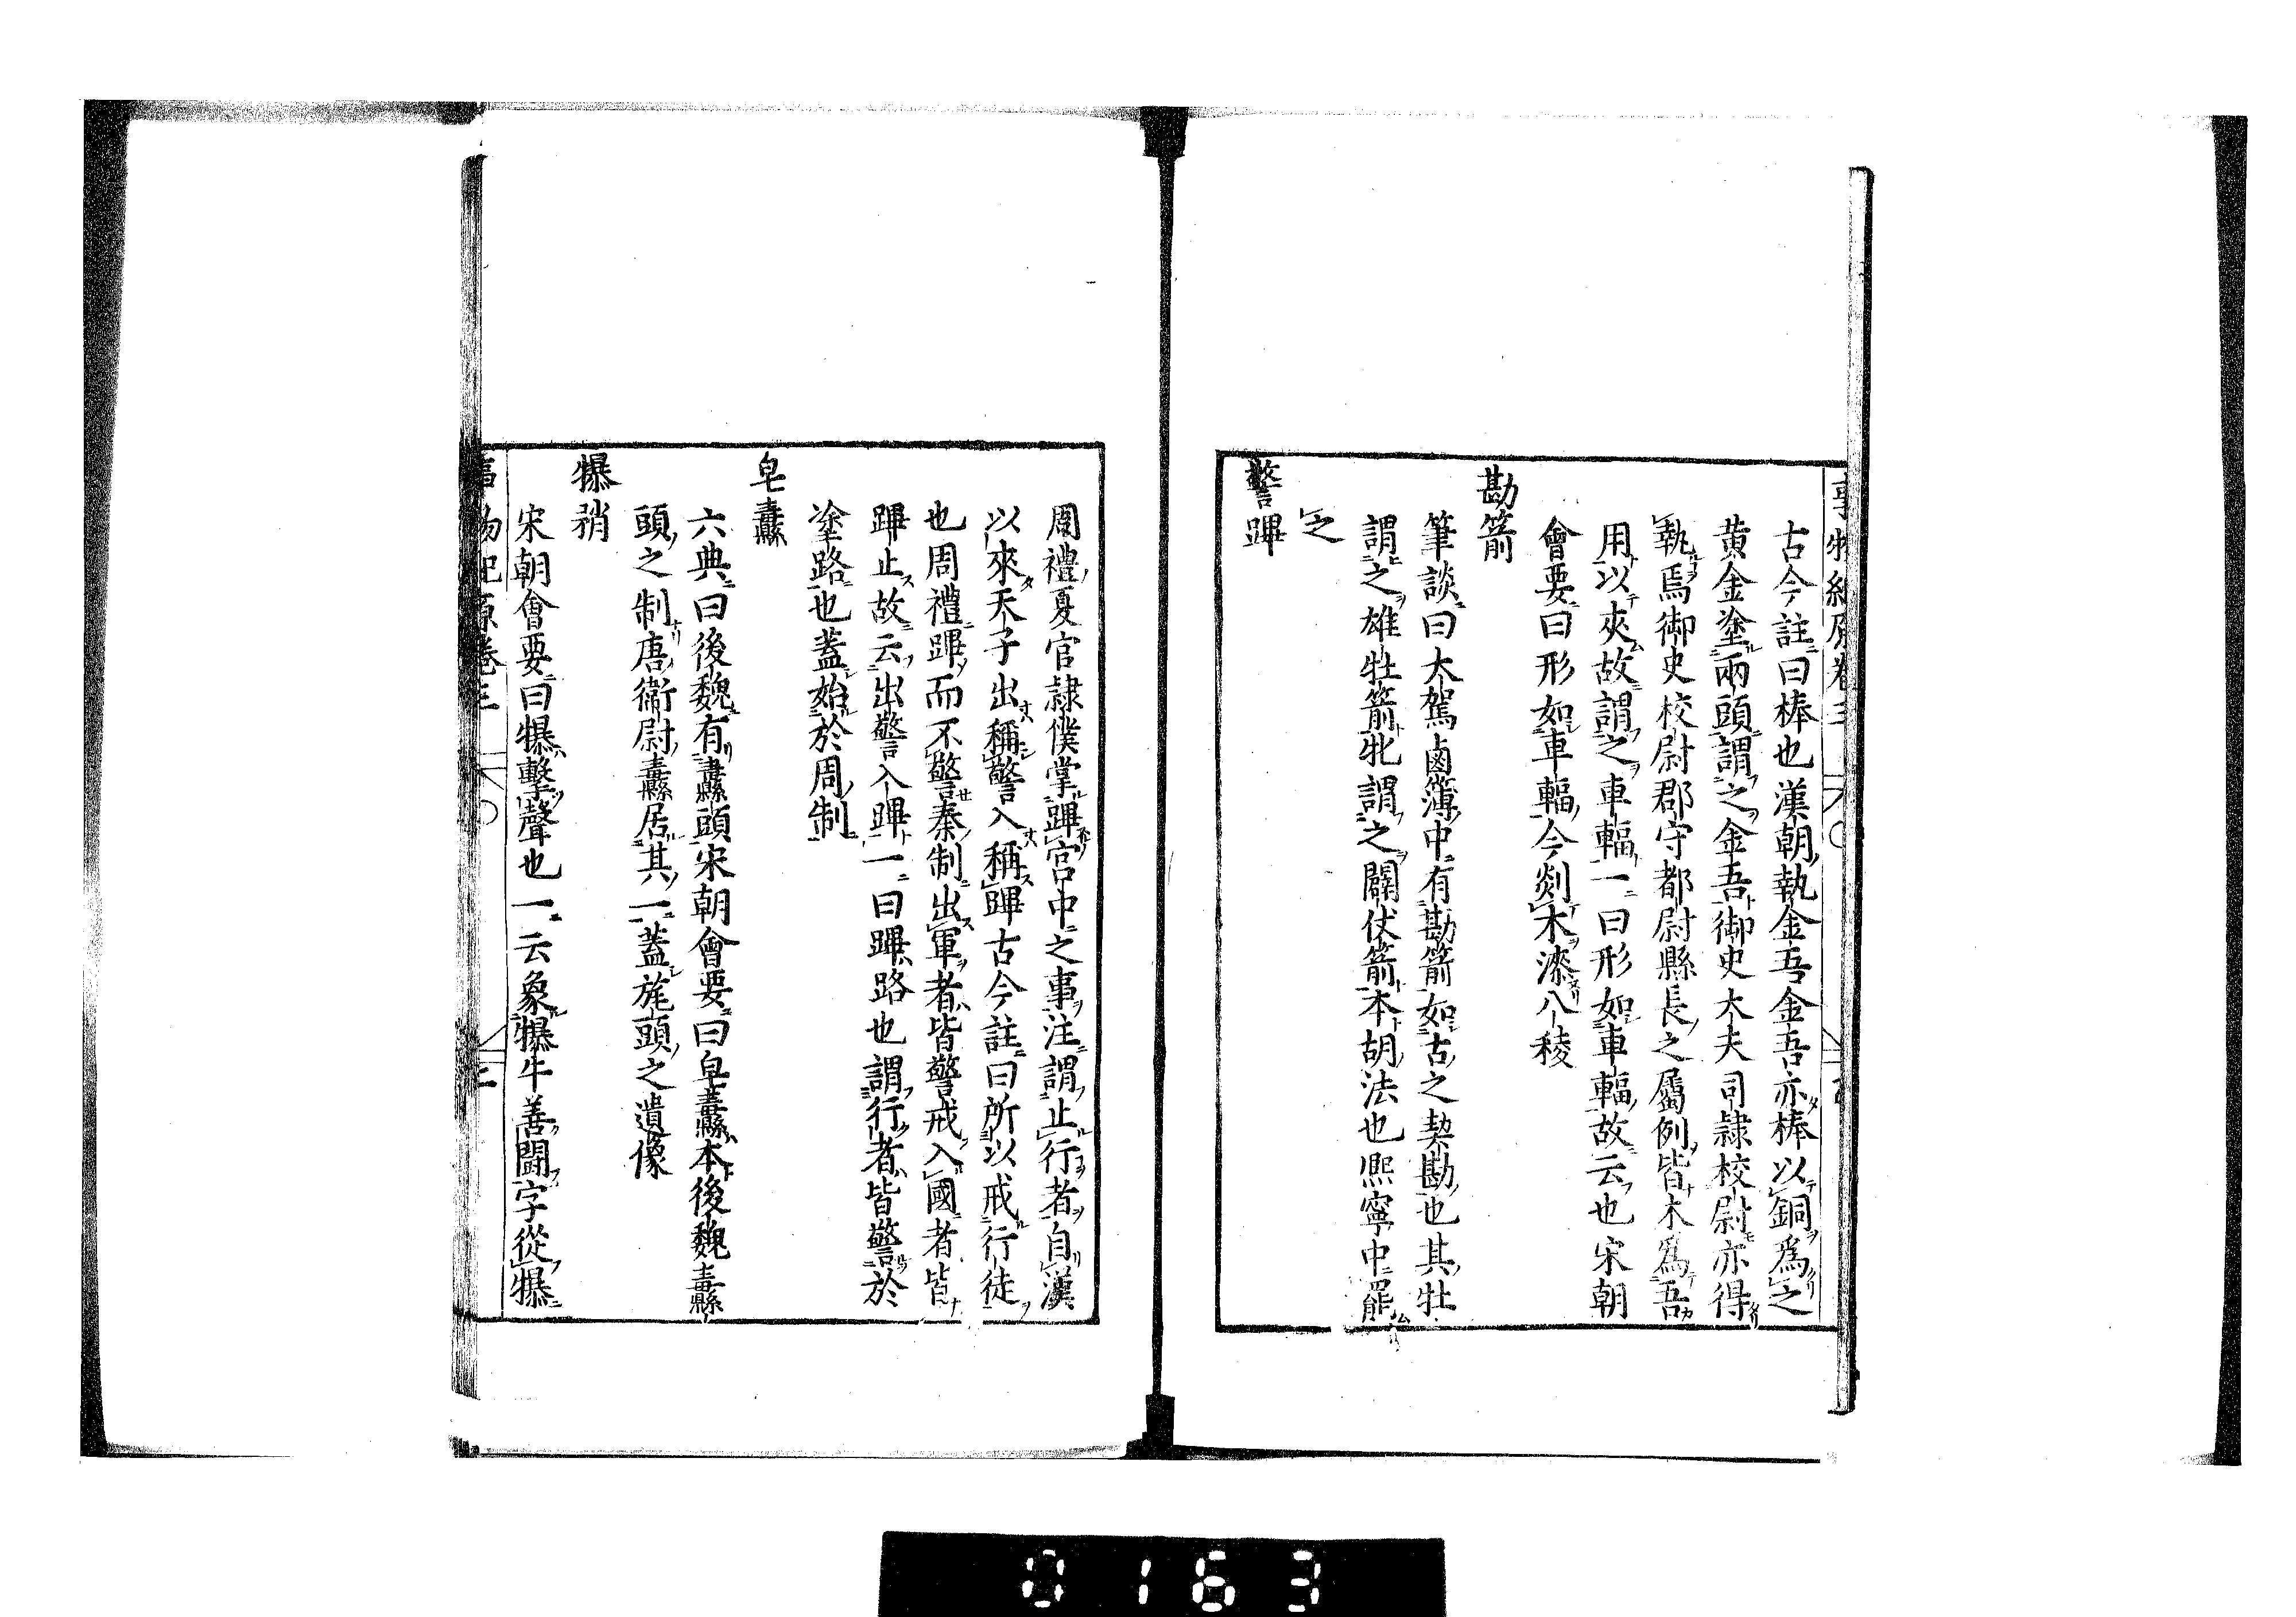 古今註曰棒也漢朝執金吾金吾亦棒以銅爲之
黄金塗兩頭謂之金吾御史大夫司隷校尉亦得
執焉御史校尉郡守都尉縣長之屬例皆木爲吾
用以夾故謂之車輻一曰形如車輻故云也宋朝
會要曰形如車輻今剡木漆八稜
勘箭
筆談曰大駕鹵簿中有勘箭如古之契勘也其牡
謂之雄牡箭牝謂之闢仗箭本胡法也熈寧中罷
之
警蹕
周禮夏官隷僕掌蹕宮中之事注謂止行者自漢
以來天子出稱警入稱蹕古今註曰所以戒行徒
也周禮蹕而不警秦制出軍者皆警戒入國者皆
蹕止故云出警入蹕一曰蹕路也謂行者皆警於
塗路也蓋始於周制
皂纛
六典曰後魏有纛頭宋朝會要曰皁纛本後魏纛
頭之制唐衛尉纛居其一蓋旄頭之遺像
犦矟
宋朝會要曰犦擊聲也一云象犦牛善鬪字從犦
事物紀原卷三
0163